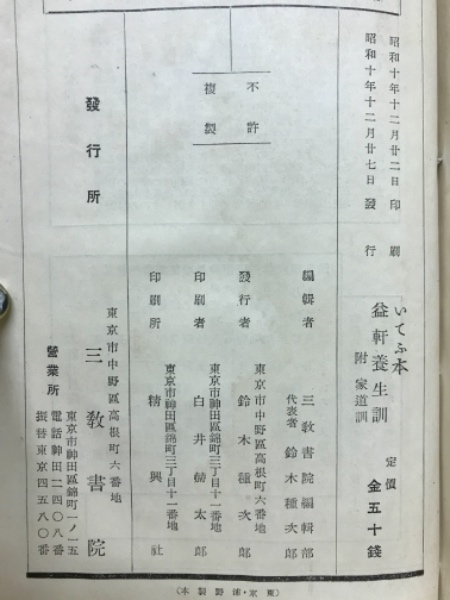 昭和十年十二月廿二日印刷
昭和十年十二月廿七日發行
いてふ本
益軒養生訓
附 家道訓
定價 金五十錢
不許
複製
編輯者 三教書院編輯部
代表者 鈴木種次郎
東京市中野區高根町六番地
發行者 鈴木種次郎
東京市神田區錦町三丁目十一番地
印刷者 白井赫太郎
東京市神田區錦町三丁目十一番地
印刷所 精興社
發行所
東京市中野區高根町六番地
三教書院
營業所
東京市神田區錦町一ノ一五
電話神田二四〇八番
振替東京四五八〇番
(東京・浦野製本)